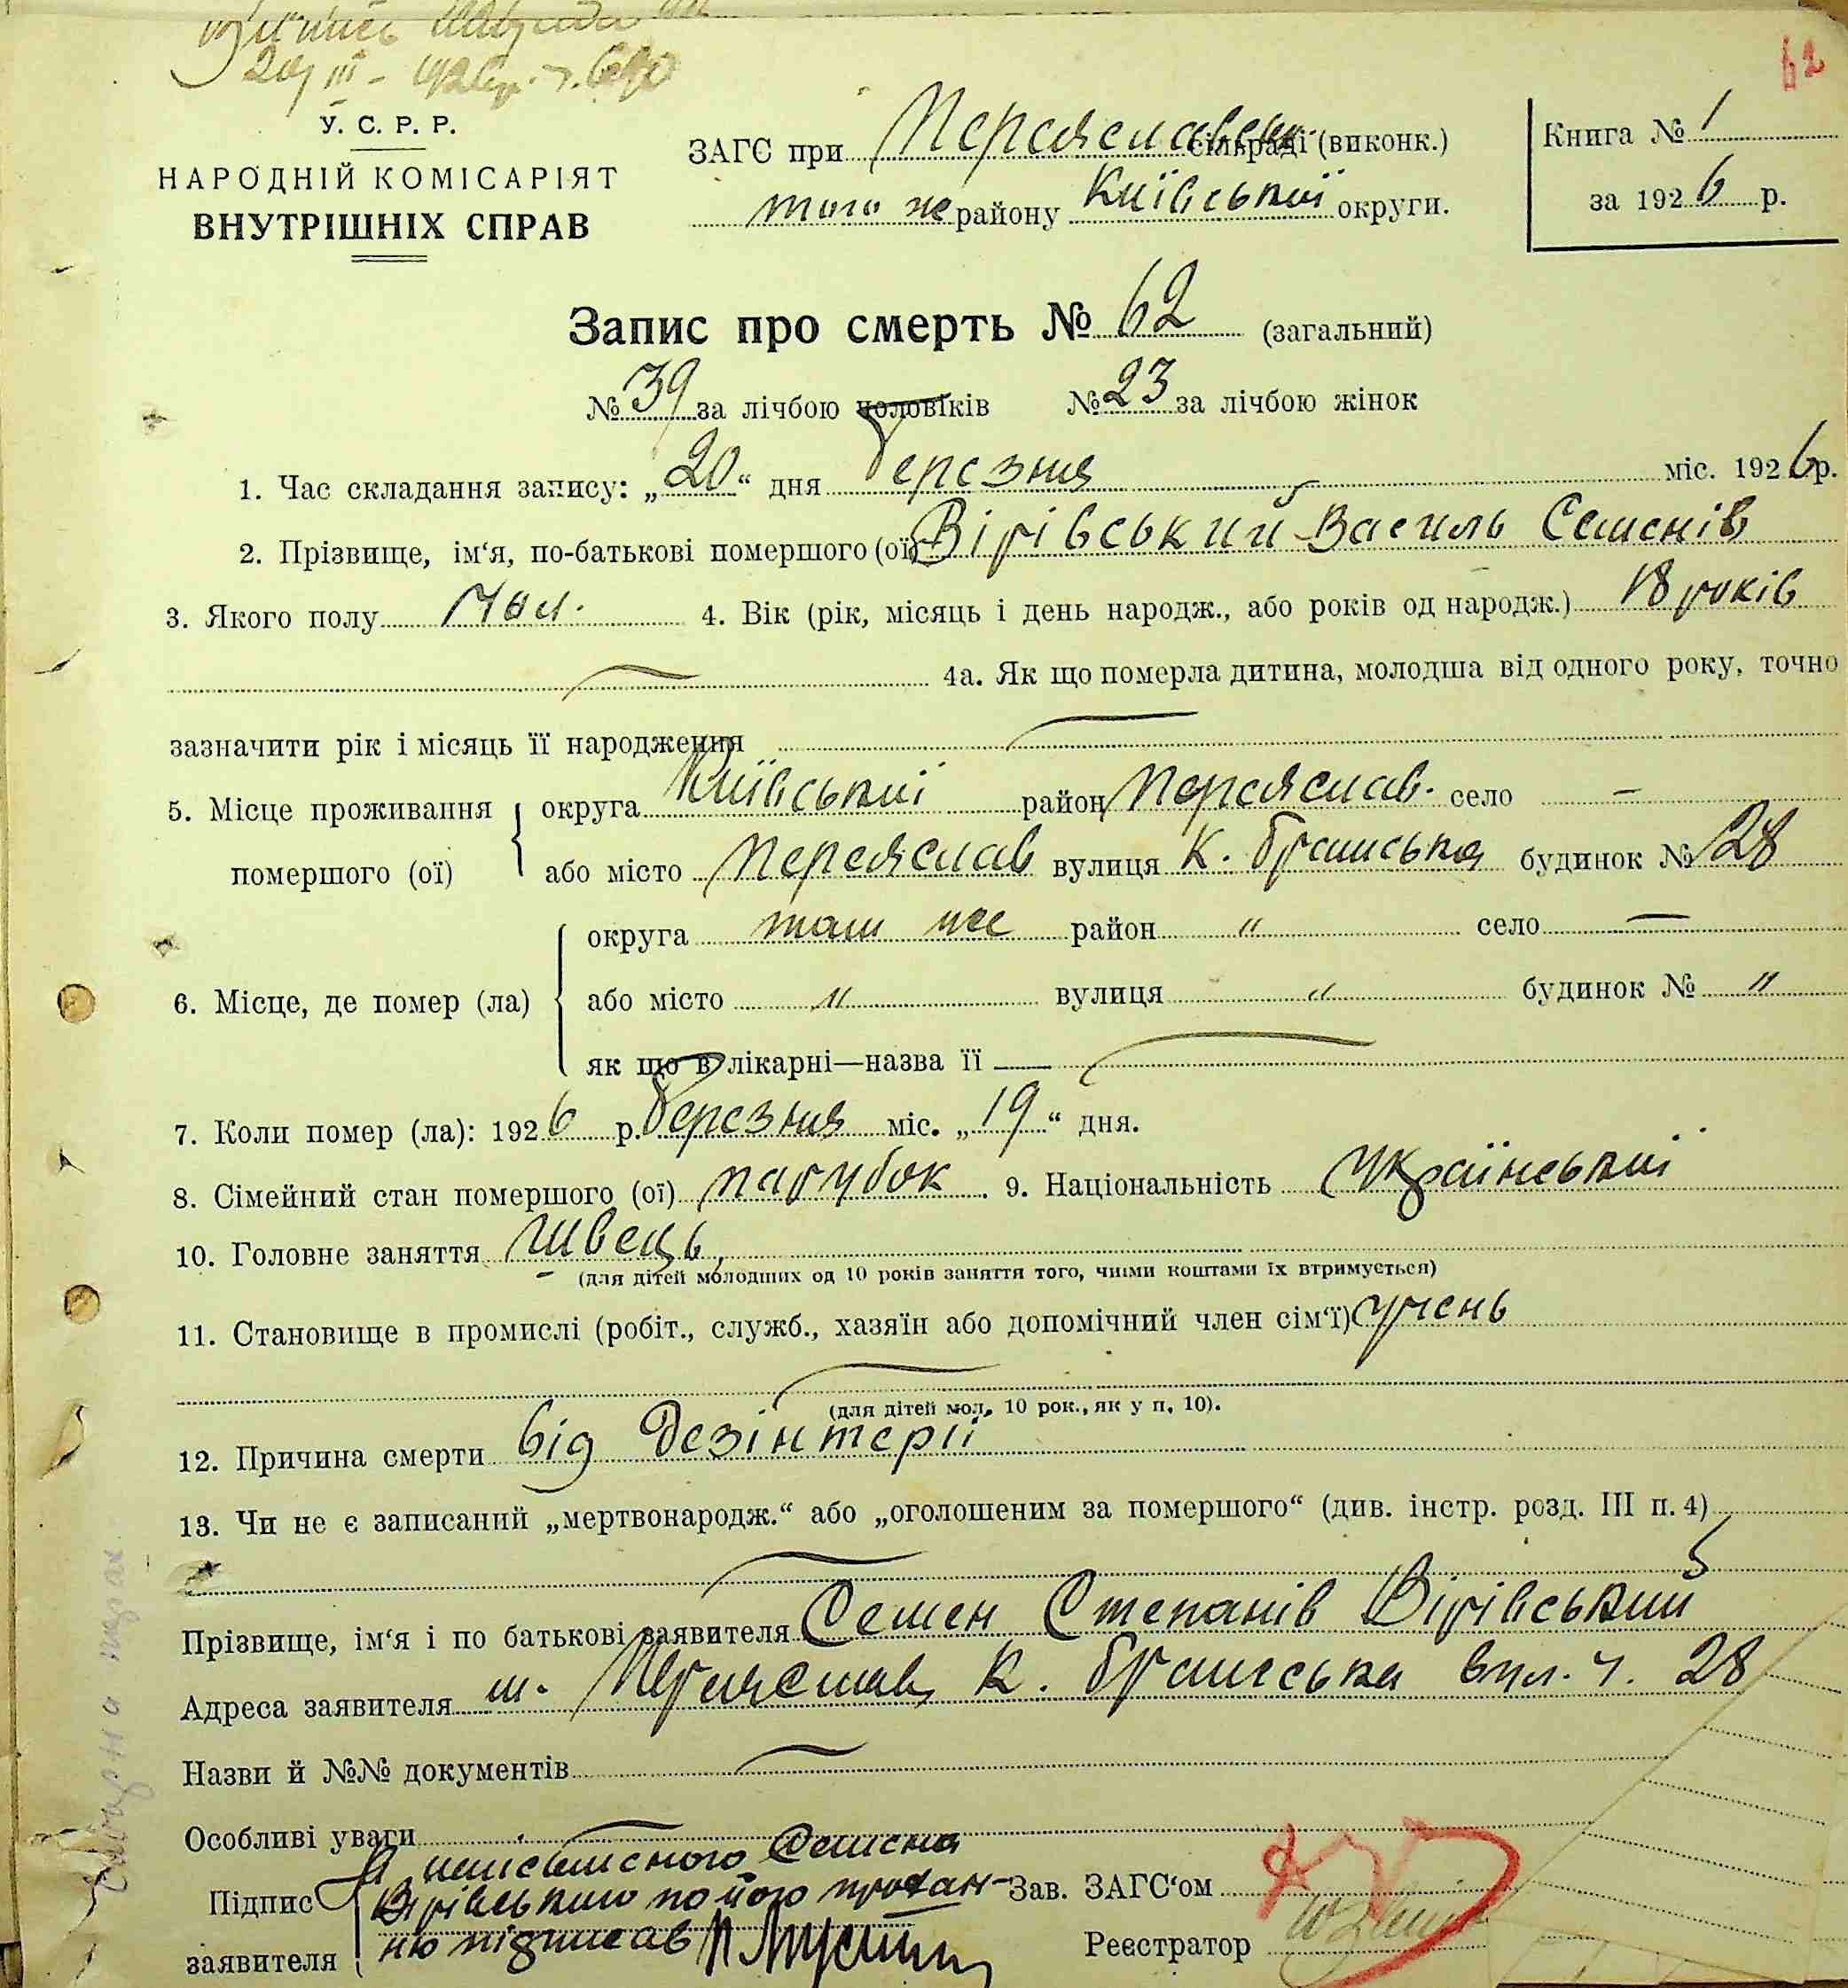 20 III - 1926 р.
62
У. С. Р. Р.
НАРОДНІЙ КОМІСАРІЯТ
ВНУТРІШНІХ СПРАВ
ЗАГС при Переяславськ. сільраді (виконк.)
того же району Київській округи.
Книга № 1
за 1926 р.
Запис про смерть № 62 (загальний)
№ 39 за лічбою чоловіків № 23 за лічбою жінок
1. Час складання запису: „20“ дня Березня міс. 1926 р.
2. Прізвище, ім‘я, по-батькові помершого (ої) Вірівський Василь Семенів
3. Якого полу Чол. 4. Вік (рік, місяць і день народж., або років од народж.) 18 років
4а. Як що померла дитина, молодша від одного року, точно
зазначити рік і місяць її народження
5. Місце проживання помершого (ої) округа Київській район Переяслав. село —
або місто Переяслав вулиця К. Брамська будинок № 28
6. Місце, де помер (ла) округа там же район " село —
або місто " вулиця " будинок № "
як що в лікарні—назва її
7. Коли помер (ла): 1926 р. Березня міс. „19“ дня.
8. Сімейний стан помершого (ої) парубок. 9. Національність Український
10. Головне заняття Швець,
(для дітей молодших од 10 років заняття того, чиїми коштами їх втримується)
11. Становище в промислі (робіт., служб., хазяїн або допомічний член сім‘ї) учень
(для дітей мол. 10 рок., як у п. 10).
12. Причина смерти від Дезінтерії
13. Чи не є записаний „мертвонародж.“ або „оголошеним за помершого“ (див. інстр. розд. III п. 4)
Прізвище, ім‘я і по батькові заявителя Семен Степанів Вірівський
Адреса заявителя м. Переяслав, К. Брамська вул. ч. 28
Назви й №№ документів
Особливі уваги
Підпис заявителя За неписьменого Семена
Вірівського по його прохан-
ню підписав
Зав. ЗАГС‘ом
Реєстратор